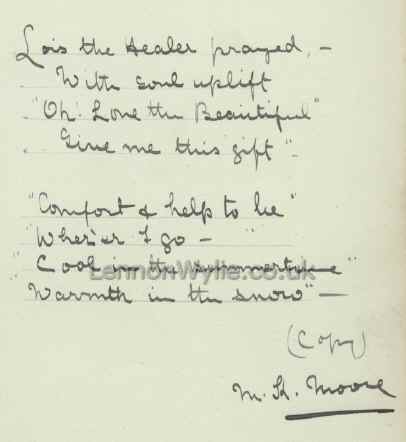 Lois the Healer prayed, –
With soul uplift
"Oh! Love the Beautiful"
Give me this gift".
"Comfort & help to be"
"Where'er I go –
"Cool in the summertime"
LennonWylie.co.uk
Warmth in the snow" –
(Copy)
M. K. Moore